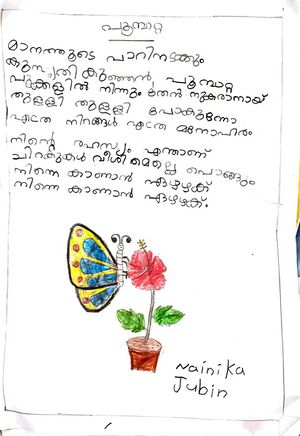 പൂമ്പാറ്റ
മാനത്തൂടെ പാറിനടക്കും
കുസൃതി കുഞ്ഞൻ പൂമ്പാറ്റ
പൂക്കളിൽ നിന്നും തേൻ നുകരാനായ്
തുള്ളി തുള്ളി പോകുന്നോ
എത്ര നിറങ്ങൾ എത്ര മനോഹരം
നിന്റെ രഹസ്യം എന്താണ്
ചിറകുകൾ വീശി മെല്ലെ പൊങ്ങും
നിന്നെ കാണാൻ ഏഴഴക്
നിന്നെ കാണാൻ ഏഴഴക്.
Nainika
Jubin